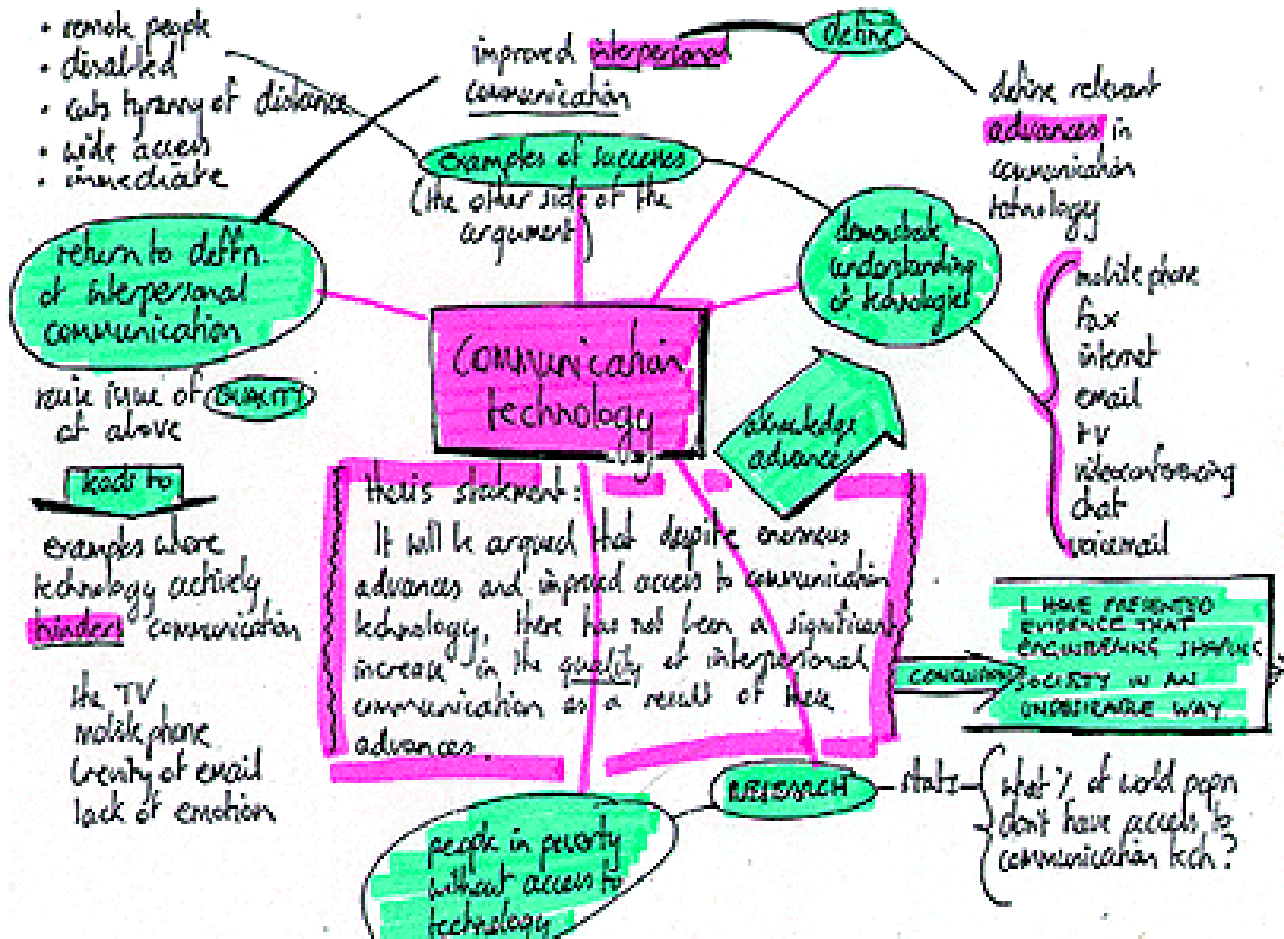 • remote people
• disabled
• cuts tyranny of distance
• wide access
• immediate
improved interpersonal
communication
define
define relevant
advances in
communication
technology
examples of success
(the other side of the
argument)
demonstrate
understanding
of technologies
mobile phone
fax
internet
email
tv
videoconferencing
chat
voicemail
return to deffn.
of interpersonal
communication
raise issue of QUALITY
of above
leads to
examples where
technology actively
hinders communication
the TV
mobile phone
brevity of email
lack of emotion
Communication
technology
advances
thesis statement:
It will be argued that despite enormous
advances and improved access to communication
technology, there has not been a significant
increase in the quality of interpersonal
communication as a result of these
advances.
I HAVE PRESENTED
EVIDENCE THAT
ENGINEERING SHAPING
SOCIETY IN AN
UNDESIRABLE WAY
RESEARCH
stats
what % of world popn
don't have access to
communication tech?
people in poverty
without access to
technology